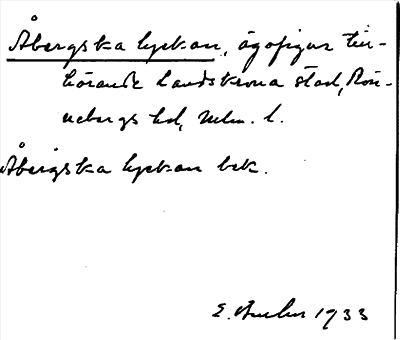 Åbergska lyckan, ägofigur till-
hörande Landskrona stad, Rön-
nebergs hd, Malm. l.
Åbergska lyckan bek.
E. 1933